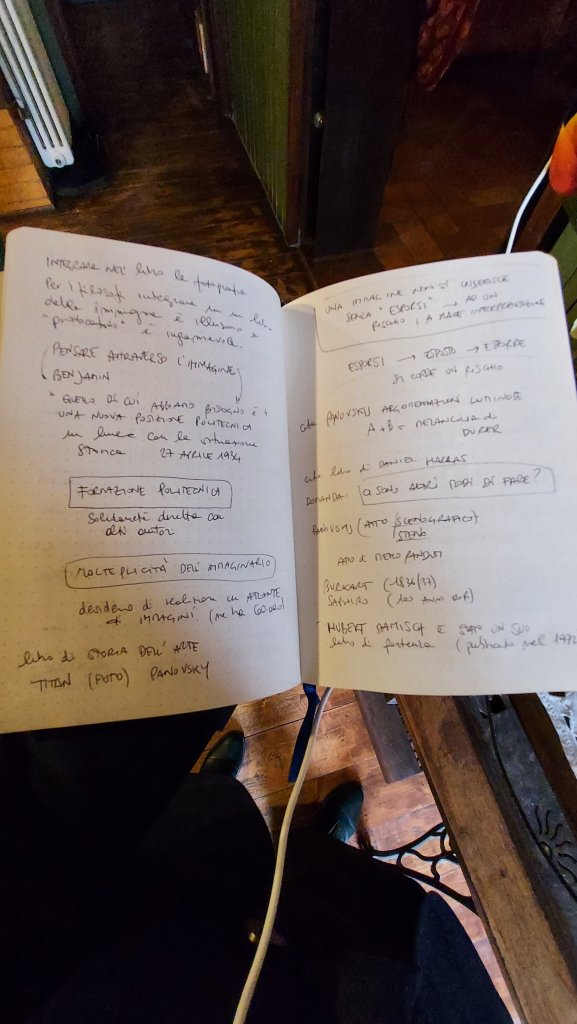 INTEGRARE NEL libro le fotografie
Per i filosofi integrare in un libro
delle immagini è illusorio e
"provocatorio" è ingannevole.
PENSARE ATTRAVERSO L'IMMAGINE
BENJAMIN
"QUELLO DI CUI ABBIAMO BISOGNO È
UNA NUOVA POSIZIONE POLITECNICA
in linea con la situazione
storica 27 APRILE 1934
FORMAZIONE POLITECNICA
Solidarietà diretta con
altri autori
MOLTEPLICITÀ DELL'IMMAGINARIO
desiderio di realizzare un ATLANTE
di IMMAGINI (ne ha 60.000)
libro di STORIA DELL'ARTE
TITIAN (FOTO) PANOVSKY
UNA IMMAGINE NON SI INSERISCE
SENZA "ESPORSI" → AD UN
RISCHIO, A MALE INTERPRETAZIONE
ESPORSI → ESPOSTO → ESPORRE
SI CORRE UN RISCHIO
cita PANOVSKIJ ARGOMENTAZIONI LUMINOSE
A + B = MELANCOLIA di
DURER
cita libro di DANIEL
DOMANDA: CI SONO ALTRI MODI DI FARE?
PANOVSKIJ (ATTO SCENOGRAFICO)
BURKART (-1836/37)
(100 ANNI DOPO)
HUBERT DAMISCH E STATO UN SUO
libro di partenza (pubblicato nel 1972